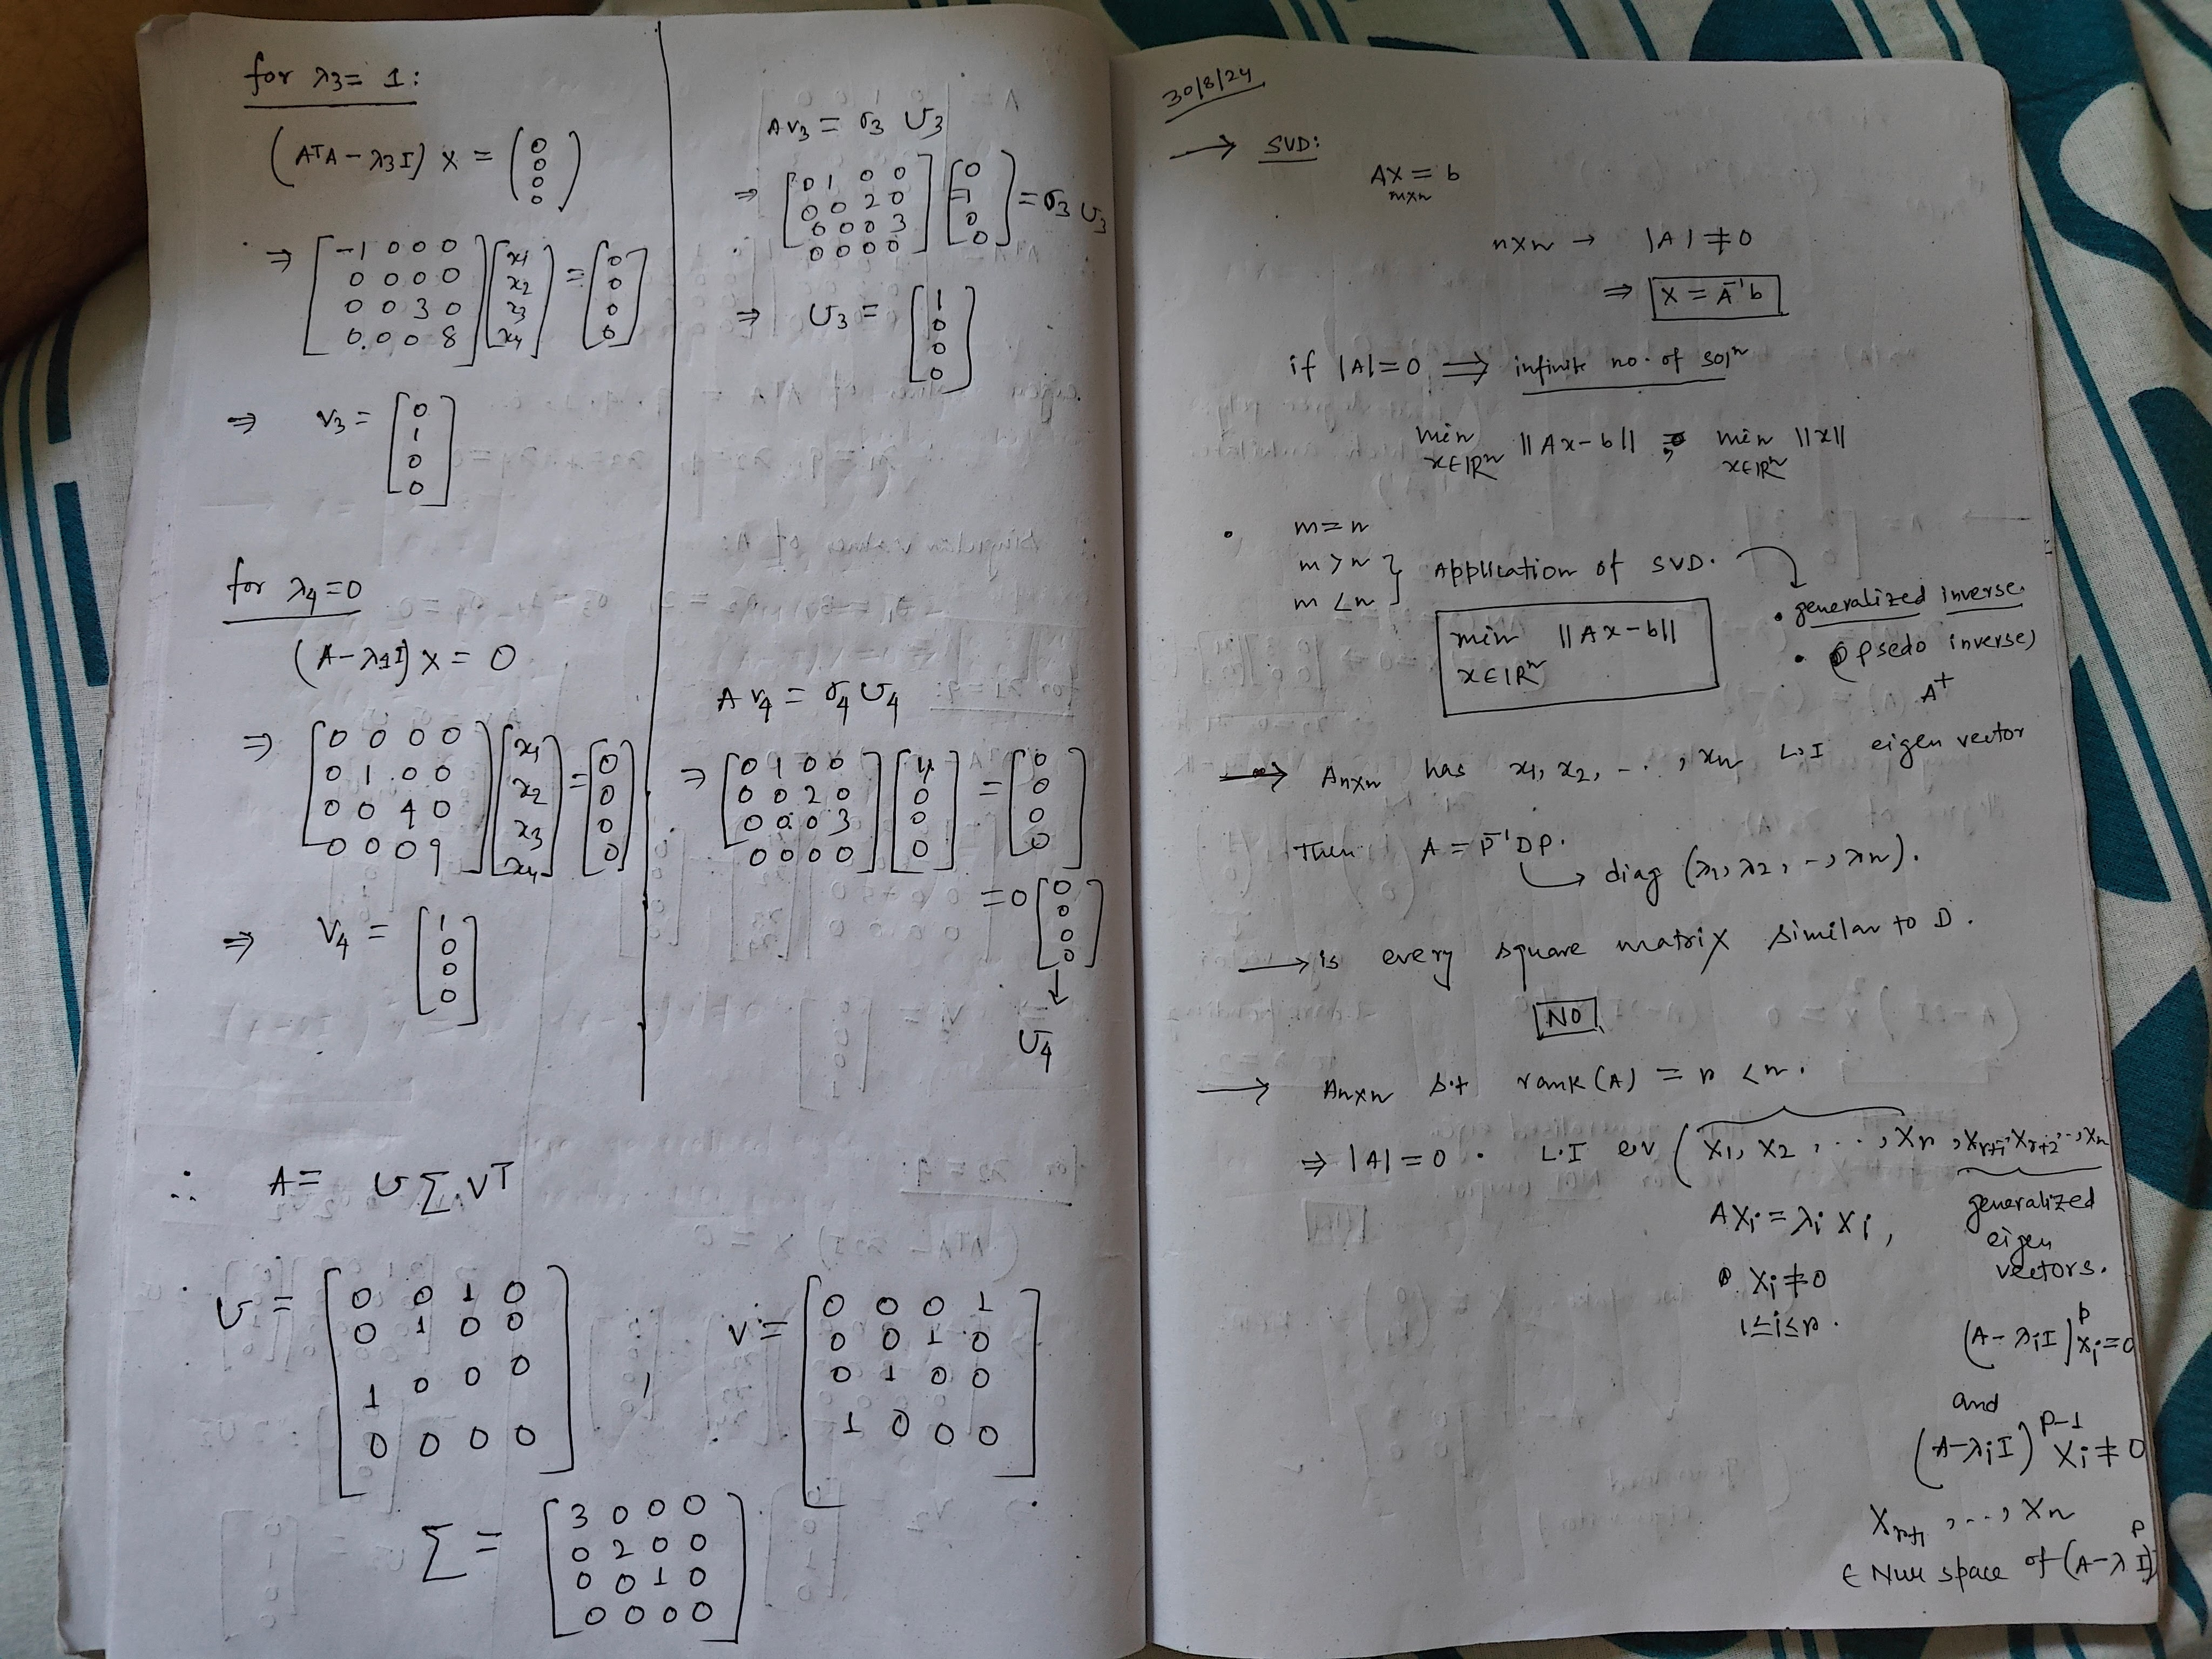 for λ3 = 1:
(ATA - λ3I) X = (0 0 0 0)
⇒ [-1 0 0 0
0 0 0 0
0 0 3 0
0 0 0 8] [x1 x2 x3 x4] = [0 0 0 0]
⇒ v3 = [0 1 0 0]
for λ4 = 0
(A - λ4I) X = 0
⇒ [0 0 0 0
0 1 0 0
0 0 4 0
0 0 0 9] [x1 x2 x3 x4] = [0 0 0 0]
⇒ V4 = [1 0 0 0]
AV3 = σ3 U3
⇒ [0 1 0 0
0 0 2 0
0 0 0 3
0 0 0 0] [0 1 0 0] = σ3 U3
⇒ U3 = [1 0 0 0]
A V4 = σ4 U4
⇒ [0 1 0 0
0 0 2 0
0 0 0 3
0 0 0 0] [1 0 0 0] = [0 0 0 0]
= 0 [0 0 0 0]
↓
U4
∴ A = U Σ VT
U = [0 0 1 0
0 1 0 0
1 0 0 0
0 0 0 0] ,
V = [0 0 0 1
0 0 1 0
0 1 0 0
1 0 0 0]
Σ = [3 0 0 0
0 2 0 0
0 0 1 0
0 0 0 0]
30/8/24
→ SVD:
AX = b
m×n
n×n → |A| ≠ 0
⇒ X = A⁻¹b
if |A| = 0 ⇒ infinite no. of solⁿ
min ||Ax - b|| , min ||x||
x∈ℝⁿ x∈ℝⁿ
• m = n
m > n } Application of SVD.
m < n
• generalized inverse.
min ||Ax - b||
x∈ℝⁿ
• (psedo inverse)
A⁺
→ An×n has x1, x2, - . . , xn L.I eigen vector
Then A = P⁻¹DP.
→ diag (λ1, λ2, - , λn).
→ is every square matrix similar to D.
NO
→ An×n s.t rank(A) = r < n.
⇒ |A| = 0 . L.I ev ( X1, X2, . . . , Xr , Xr+1, Xr+2, . . , Xn
AXi = λi Xi ,
Xi ≠ 0
1≤i≤r .
generalized
eigen
vectors.
(A - λiI)ᵖ Xi = 0
and
(A - λiI)ᵖ⁻¹ Xi ≠ 0
Xr+1 , - . . , Xn
∈ Null space of (A - λ I)ᵖ